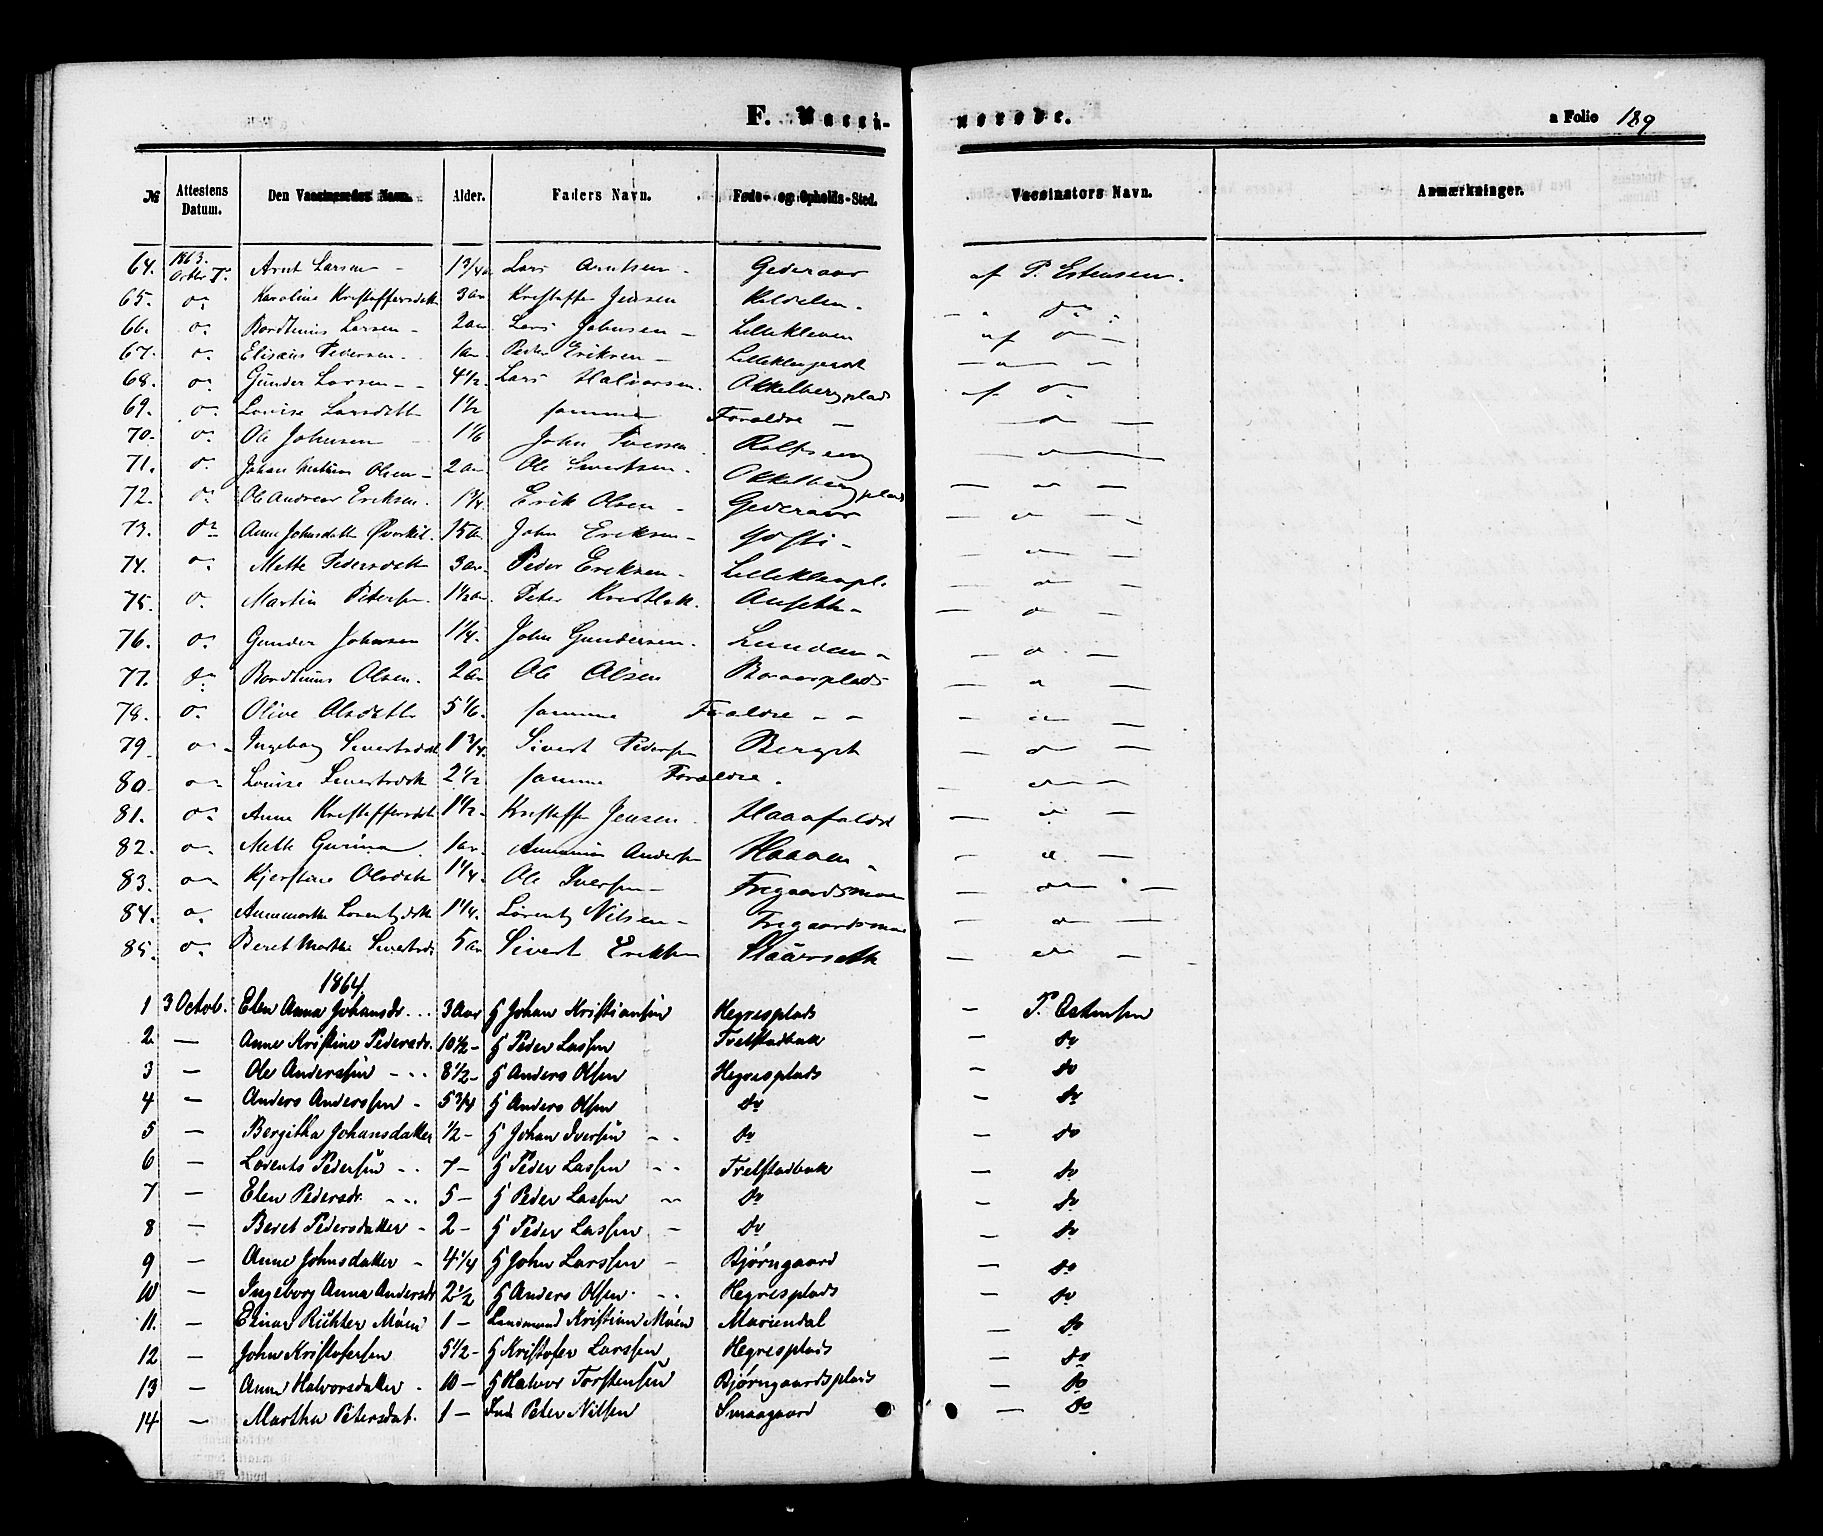 F. Vacci- nerede. a Folio 189
№ Attestens Datum. Den Vaccineredes Navn. Alder. Faders Navn. Føde- og Opholds-Sted. Vaccinators Navn. Anmærkninger.
64. 1863. Octbr 7. Arnt Larsen - 1 3/4 Lars Arntsen - Gederaas af P. Estensen.
65. do Karoline Kristoffersdatt 3 aar Kristoffer Jensen do
66. do Bardtinus Larsen - 2 aar Lars Johnsen - Lillekleven af do -
67. do Elisæus Pedersen - 1 aar Peder Eriksen - - do -
68. do Gunder Larsen - - 4 1/2 Lars Halvorsen. Okkelbergplads af do
69. do Lovise Larsdatt 1 1/2 samme Foraldre - - do -
70. do Ole Johnsen 1 1/6 John Iversen Rolfseng - do -
71. do Johan Olsen - 2 aar Ole Sivertsen. Okkelbergplads - do -
72. do Ole Andreas Eriksen. 1 3/4 Erik Olsen - Gederaas - do -
73. do Anne Johnsdatt Øverkil. John Eriksen - - do -
74. do Mette Pedersdatt 3 aar. Peder Eriksen - Lilleklevpl. - do -
75. do Martin Petersen. 1 1/2 aar Peter - do -
76. do Gunder Johnsen 1 1/4. John Gundersen. Lundem - - do -
77. do Bardtinus Olsen. 2 aar Ole Olsen - do -
78. do Olive Olsdatt 5 1/6. samme Foraldre - - - do -
79. do Ingeborg Sivertsdatt 1 3/4. Sivert Pedersen - do -
80. do Lovise Sivertsdatt 2 1/2 samme Foraldre. - do -
81. do Anne Kristoffersdatt 1 1/2. Kristoffer Jensen. - do -
82. do Mette Gurina. 1 aar. Andersen - do -
83. do Kjerstine Olsdatt 1 1/4. Ole Iversen - Trøgaardsmoen - do -
84. do Annemarthe Lorentzdatt 1 1/4. Lorentz Nilsen - Trøgaardsmoen - do -
85. do Beret Marthe Sivertsdr 5 aar Sivert Eriksen - do -
1864.
1 3 Octob. Elen Anna Johansdr. .. 3 Aar G Johan Kristiansen Hegresplads - P. Estensen
2. - Anne Kristine Pedersdr. 10 1/2 - G Peder Lassen Tretstadbak - do
3 - Ole Anderssen - .. 8 1/2 - G Anders Olsen Hegresplads - do
4 - Anders Anderssen - 5 3/4 G Anders Olsen do - do
5 - Bergitha Johansdatter 1/2 - G Johan Iversen - - do - do
6 - Lorents Pedersen - . 7 - G Peder Lassen - - Tretstadbak - do
7 - Elen Pedersdr. - .. 5 - G Peder Lassen - do - do
8 - Beret Pedersdatter - 2 - G Peder Lassen - do - do
9 - Anne Johnsdatter - 4 1/4 G John Larssen - Bjørngaard - do
10 - Ingeborg Anna Andersdr 2 1/2 G Anders Olsen. - . Hegresplads - do
11. - Einar Richter 1 - Kristian Mariendal - do
12 - John Kristofersen 5 1/2 - G Kristofer Larssen Hegresplads - do
13 - Anne Halvorsdatter . 10 - G Halvor Torstensen Bjørngaardsplads - do
14 - Martha Petersdat. 1 - Ind Peter Nilsen Smaagaard - do